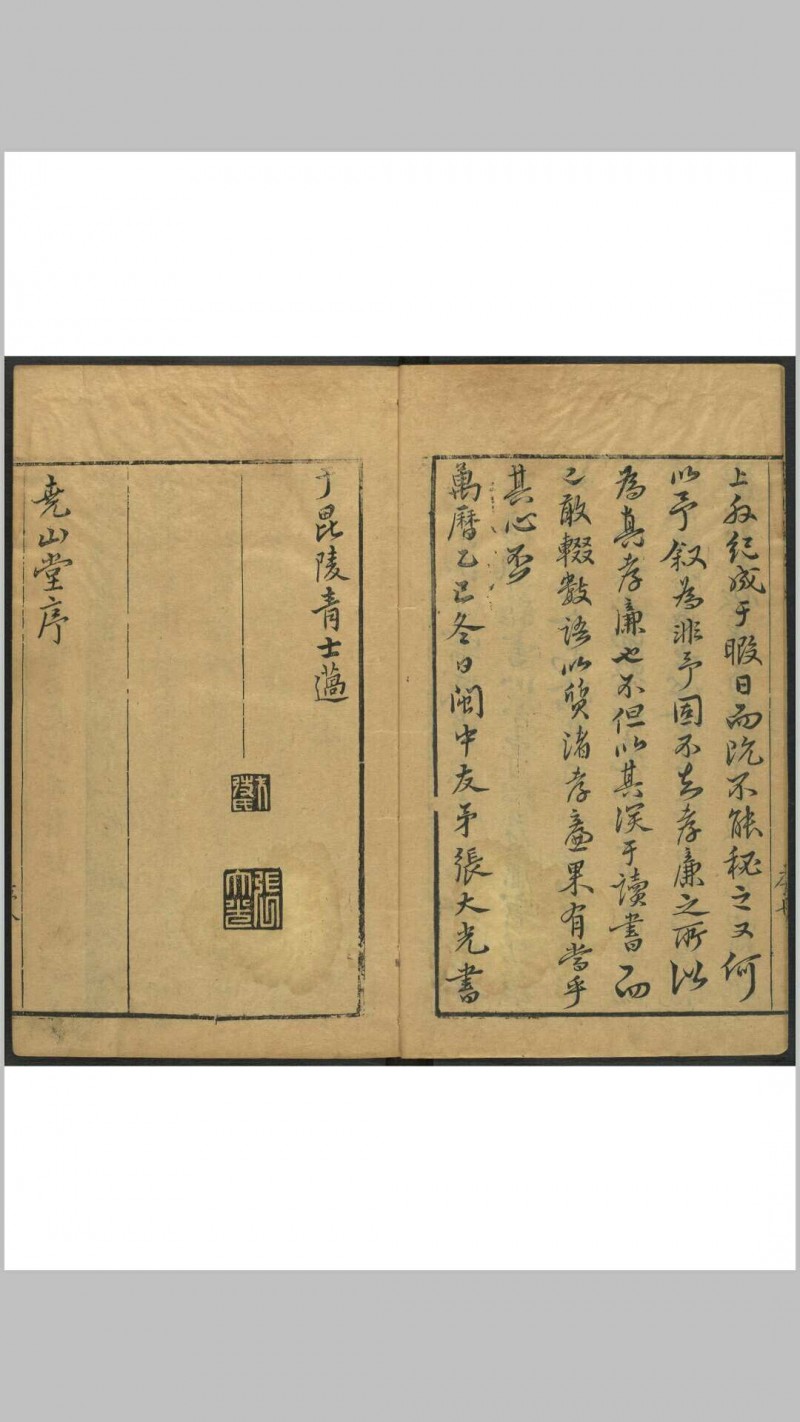 上外紀成于暇日而既不能秘之又何
以予叙為非予固不知孝廉之所以
為真孝廉也不但以其深于讀書而
已敢輟數語以質諸孝廉果有當乎
其心否
萬曆乙巳冬日閩中友弟張大光書
于毘陵青士薖
堯山堂序
張大光